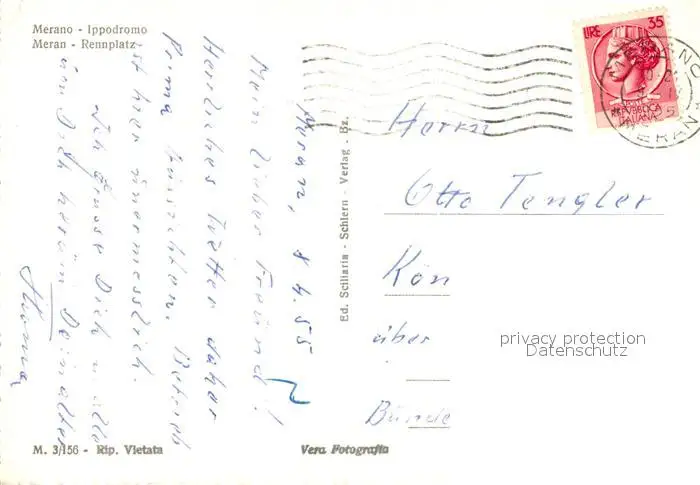 Merano - Ippodromo
Meran - Rennplatz
Meran, 8 4.55
Mein lieber Freund!
Herrliches Wetter daher
prima Aussichten. Betrieb
ist hier unermesslich.
Ich grüsse Dich u. alle
um Dich herum Dein alter
LIRE 35
REPVBBLICA
ITALIANA
MERANO
MERAN
Herrn
Otto Tengler
Kön
über
Bünde
privacy protection
Datenschutz
Ed. Sciliaria - Schlern - Verlag - Bz.
M. 3/156 - Rip. Vietata
Vera Fotografia